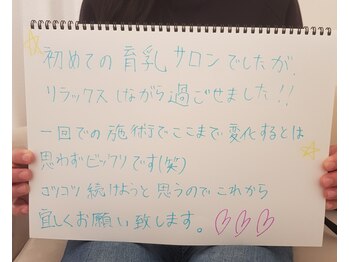 初めての育乳サロンでしたが
リラックスしながら過ごせました!!
一回での施術でここまで変化するとは
思わずビックリです(笑)
コツコツ続けようと思うのでこれから
宜しくお願い致します。